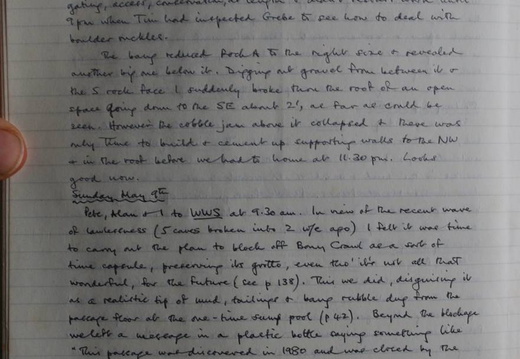 gating, access, conservation,
9pm when Tim had inspected Grebe to see how to deal with
boulder ruckles.
Re bang reduced Rock A to the right size & revealed
another big one below it. Digging out gravel from between it &
the S rock face I suddenly broke thru the roof of an open
space going down to the SE about 2', as far as could be
seen. However the cobble jam above it collapsed & there was
only time to build & cement up supporting walls to the NW
& in the roof before we had to home at 11.30 pm. Looks
good now.
Sunday, May 9th
Pete, Alan & I to WWS at 9.30 am. In view of the recent wave
of lawlessness (5 caves broken into 2 w/e ago) I felt it was time
to carry out the plan to block off Bony Crawl as a sort of
time capsule, preserving its grotto, even tho' it's not all that
wonderful, for the future (see p 138). This we did, disguising it
as a realistic tip of mud, tailings & bang rubble dug from the
passage floor at the one-time sump pool (p 42). Beyond the blockage
we left a message in a plastic bottle saying something like
"This passage was discovered in 1980 and was closed by the